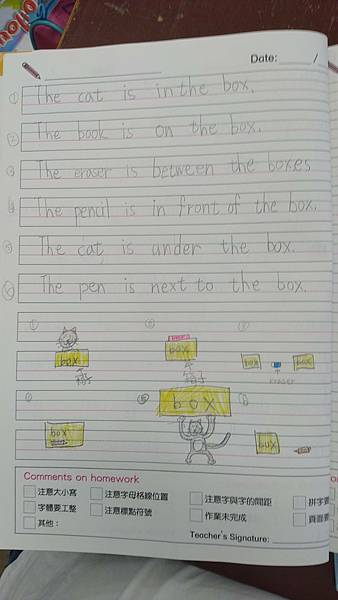 Date: /
① The cat is in the box.
② The book is on the box.
③ The eraser is between the boxes
④ The pencil is in front of the box.
⑤ The cat is under the box.
⑥ The pen is next to the box.
① ② ③
box box box box
箱子 箱子 eraser
④ ⑤ ⑥
box box box
Comments on homework
注意大小寫 注意字母格線位置 注意字與字的間距 拼字要
字體要工整 注意標點符號 作業未完成 頁面要
其他:
Teacher's Signature: